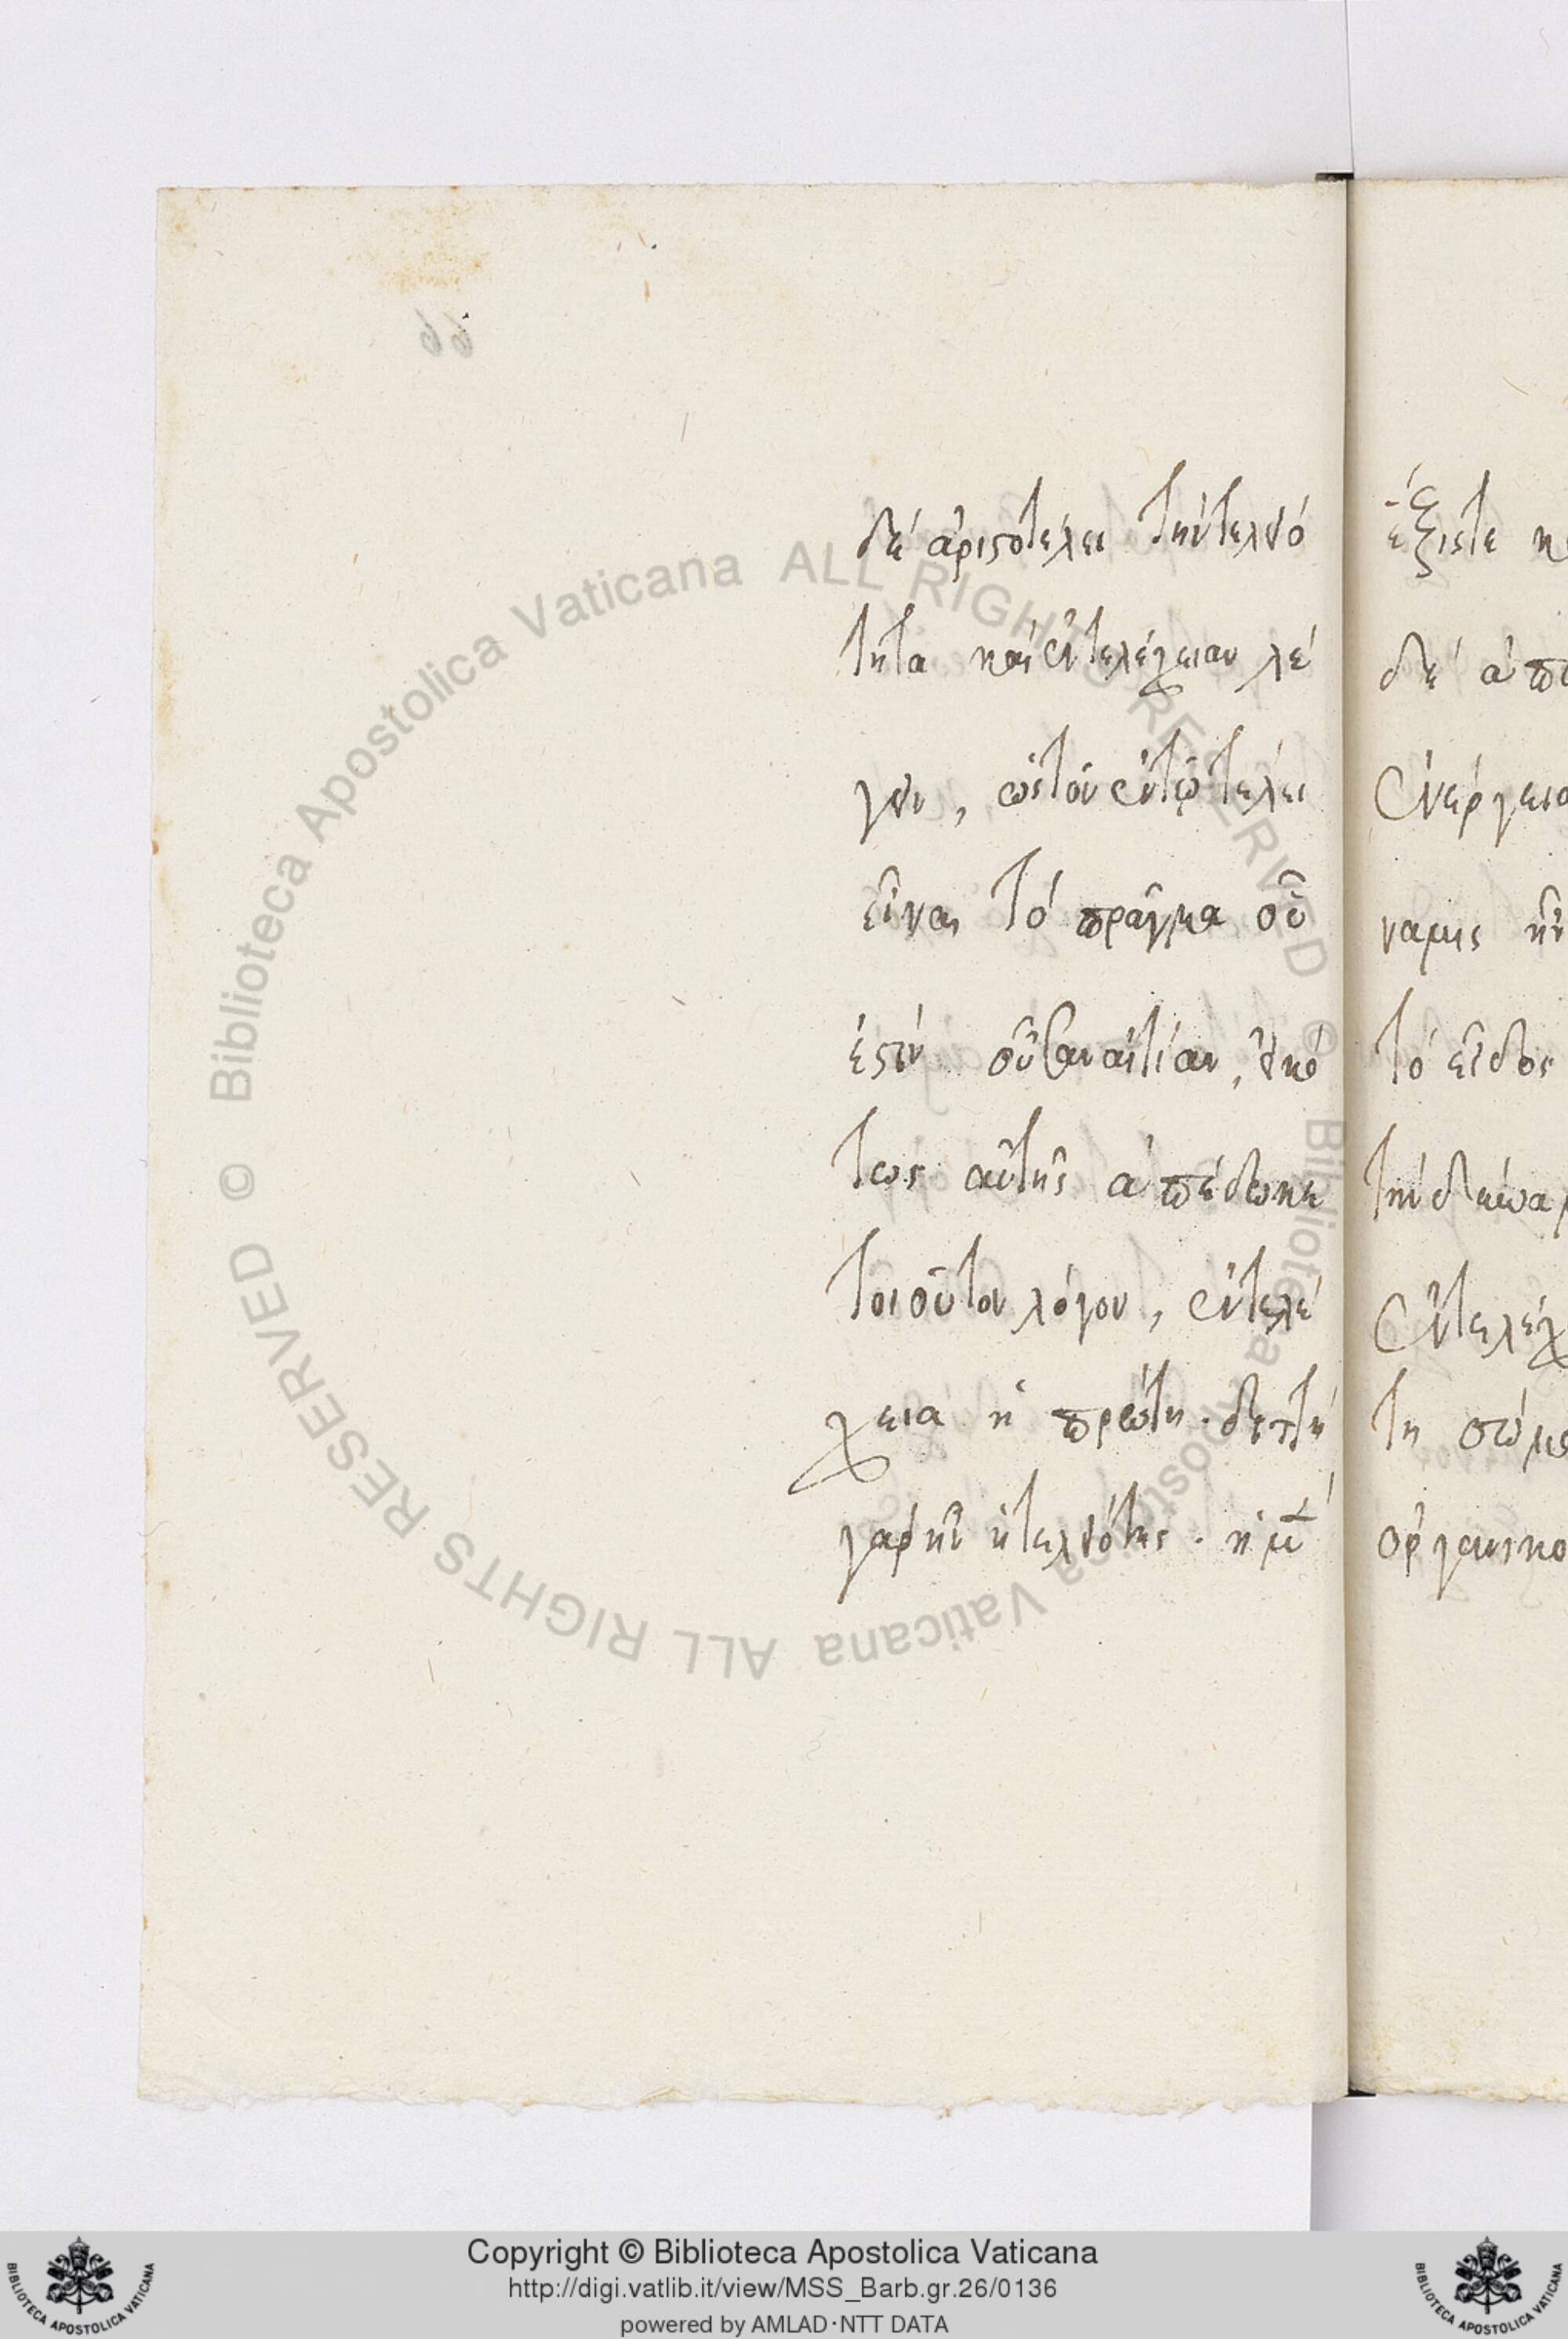 66
δέ ἀριστοτέλει τὴν τελειό
τητα καὶ ἐντελέχειαν λέ
γειν, ὡς τὸν ἐν τῷ τέλει
εἶναι τὸ πρᾶγμα οὗ
ἐστὶν οὗ ἂν αἰτίαν,
τως αὐτῆς ἀπέδωκε
τοιοῦτον λόγον, ἐντελέ
χεια ἡ πρώτη. διττὴ
γὰρ ἦν ἡ τελειότης. ἡ μὲν
ἕξις τε
δὲ ἀπ
ἐνέργεια
ναμις ἦν
τὸ εἶδος
τὴν δευ
ἐντελέχ
τη
ὀργανικο
© Biblioteca Apostolica Vaticana ALL RIGHTS RESERVED © Biblioteca Apostolica Vaticana ALL RIGHTS RESERVED
Copyright © Biblioteca Apostolica Vaticana
http://digi.vatlib.it/view/MSS_Barb.gr.26/0136
powered by AMLAD·NTT DATA
BIBLIOTECA APOSTOLICA VATICANA
BIBLIOTECA APOSTOLICA VATICANA